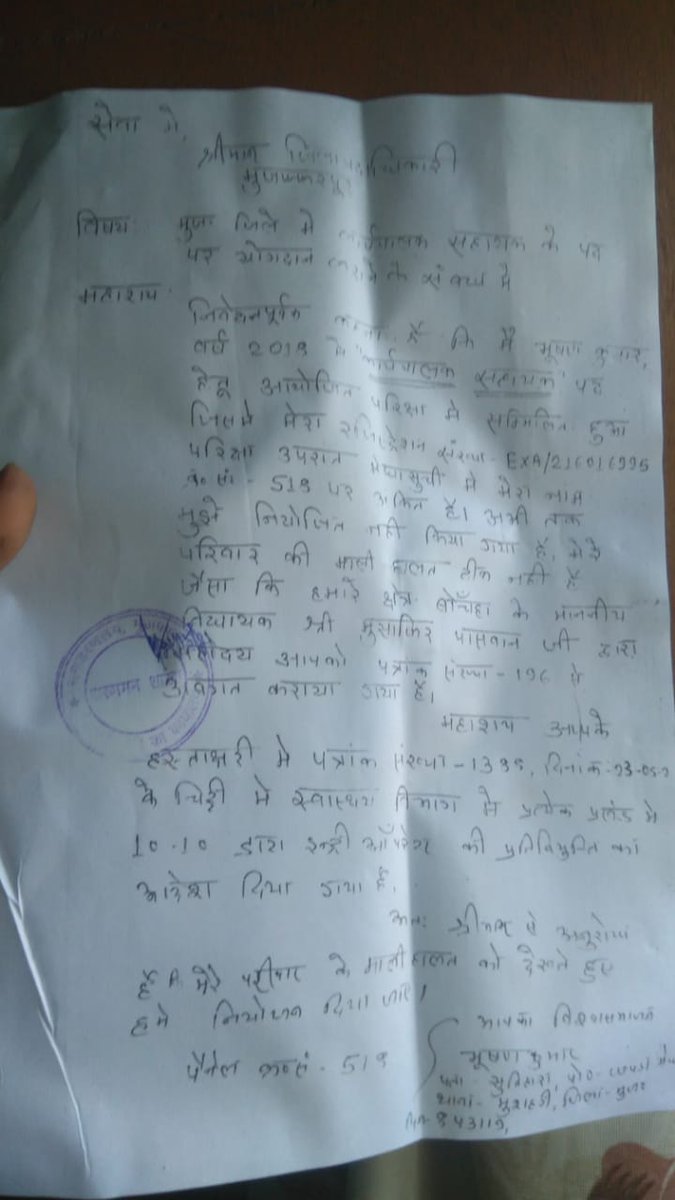 सेवा में,
श्रीमान जिला पदाधिकारी
मुजफ्फरपुर
विषय: मुज० जिले में कार्यपालक सहायक के पद
पर योगदान कराने के संबंध में
महाशय,
निवेदनपूर्वक कहना है कि मैं भूषण कुमार,
वर्ष 2019 में कार्यपालक सहायक पद
हेतू आयोजित परिक्षा में सम्मिलित हुआ
जिसमे मेरा रजिस्ट्रेशन संख्या- EXA/216016996
परिक्षा उपरांत मेधासुची में मेरा नाम
क्र० सं० - 519 पर अंकित है। अभी तक
मुझे नियोजित नहीं किया गया है, मेरे
परिवार की माली हालत ठीक नहीं है
जैसा कि हमारे क्षेत्र बोचहा के माननीय
विधायक श्री मुसाफिर पासवान जी द्वारा
महोदय आपको पत्रांक संख्या - 196 से
अवगत कराया गया है।
महाशय आपके
हस्ताक्षरी में पत्रांक संख्या - 1395, दिनांक-
के चिठ्ठी में स्वास्थय विभाग में प्रत्येक प्रखंड में
10-10 डाटा इन्ट्री ऑपरेटर की प्रतिनियुक्ति का
आदेश दिया गया है,
अतः श्रीमान से अनुरोध
है मेरे परीवार के मालीहालत को देखते हुए
हमे नियोजन दिया जाए।
आपका विश्वासभाजन
पैनेल क्र० सं० - 519
भूषण कुमार
पता- पो०-
थाना- मुशहरी, जिला- मुज०
पिन- 843119,